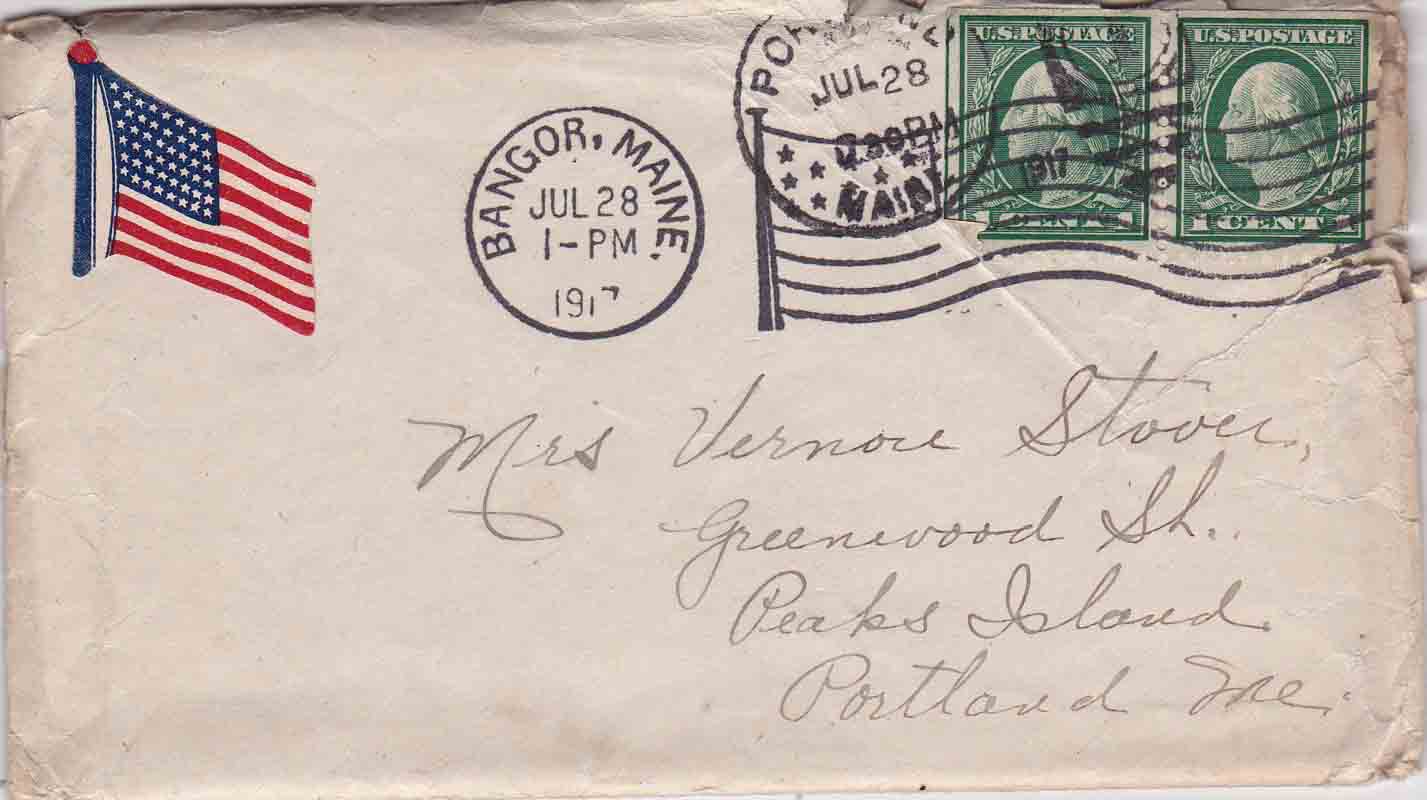 BANGOR, MAINE.
JUL 28
1-PM
1917
JUL 28
MAINE
1917
U.S. POSTAGE
1 CENT 1
U.S. POSTAGE
1 CENT 1
Mrs Vernon Stover,
Greenwood St.
Peaks Island
Portland Me.